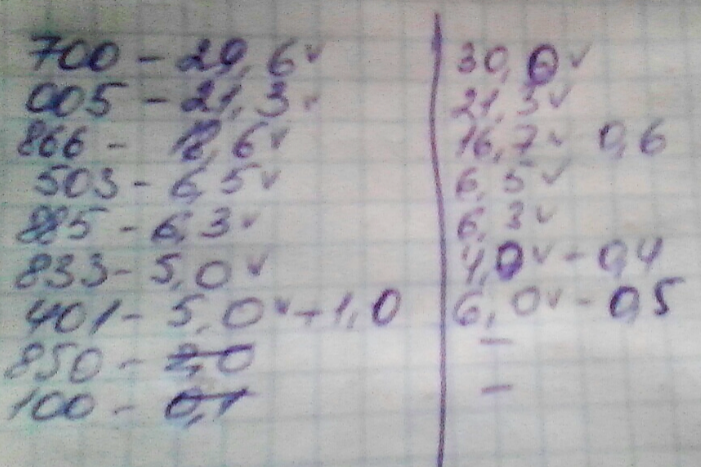 700 - 29,6 v 30,0 v
005 - 21,3 v 21,3 v
866 - 18,6 v 16,7 v 0,6
503 - 6,5 v 6,5 v
885 - 6,3 v 6,3 v
833 - 5,0 v 4,0 v - 0,4
401 - 5,0 v + 1,0 6,0 v - 0,5
850 - 2,0 -
100 - 0,1 -